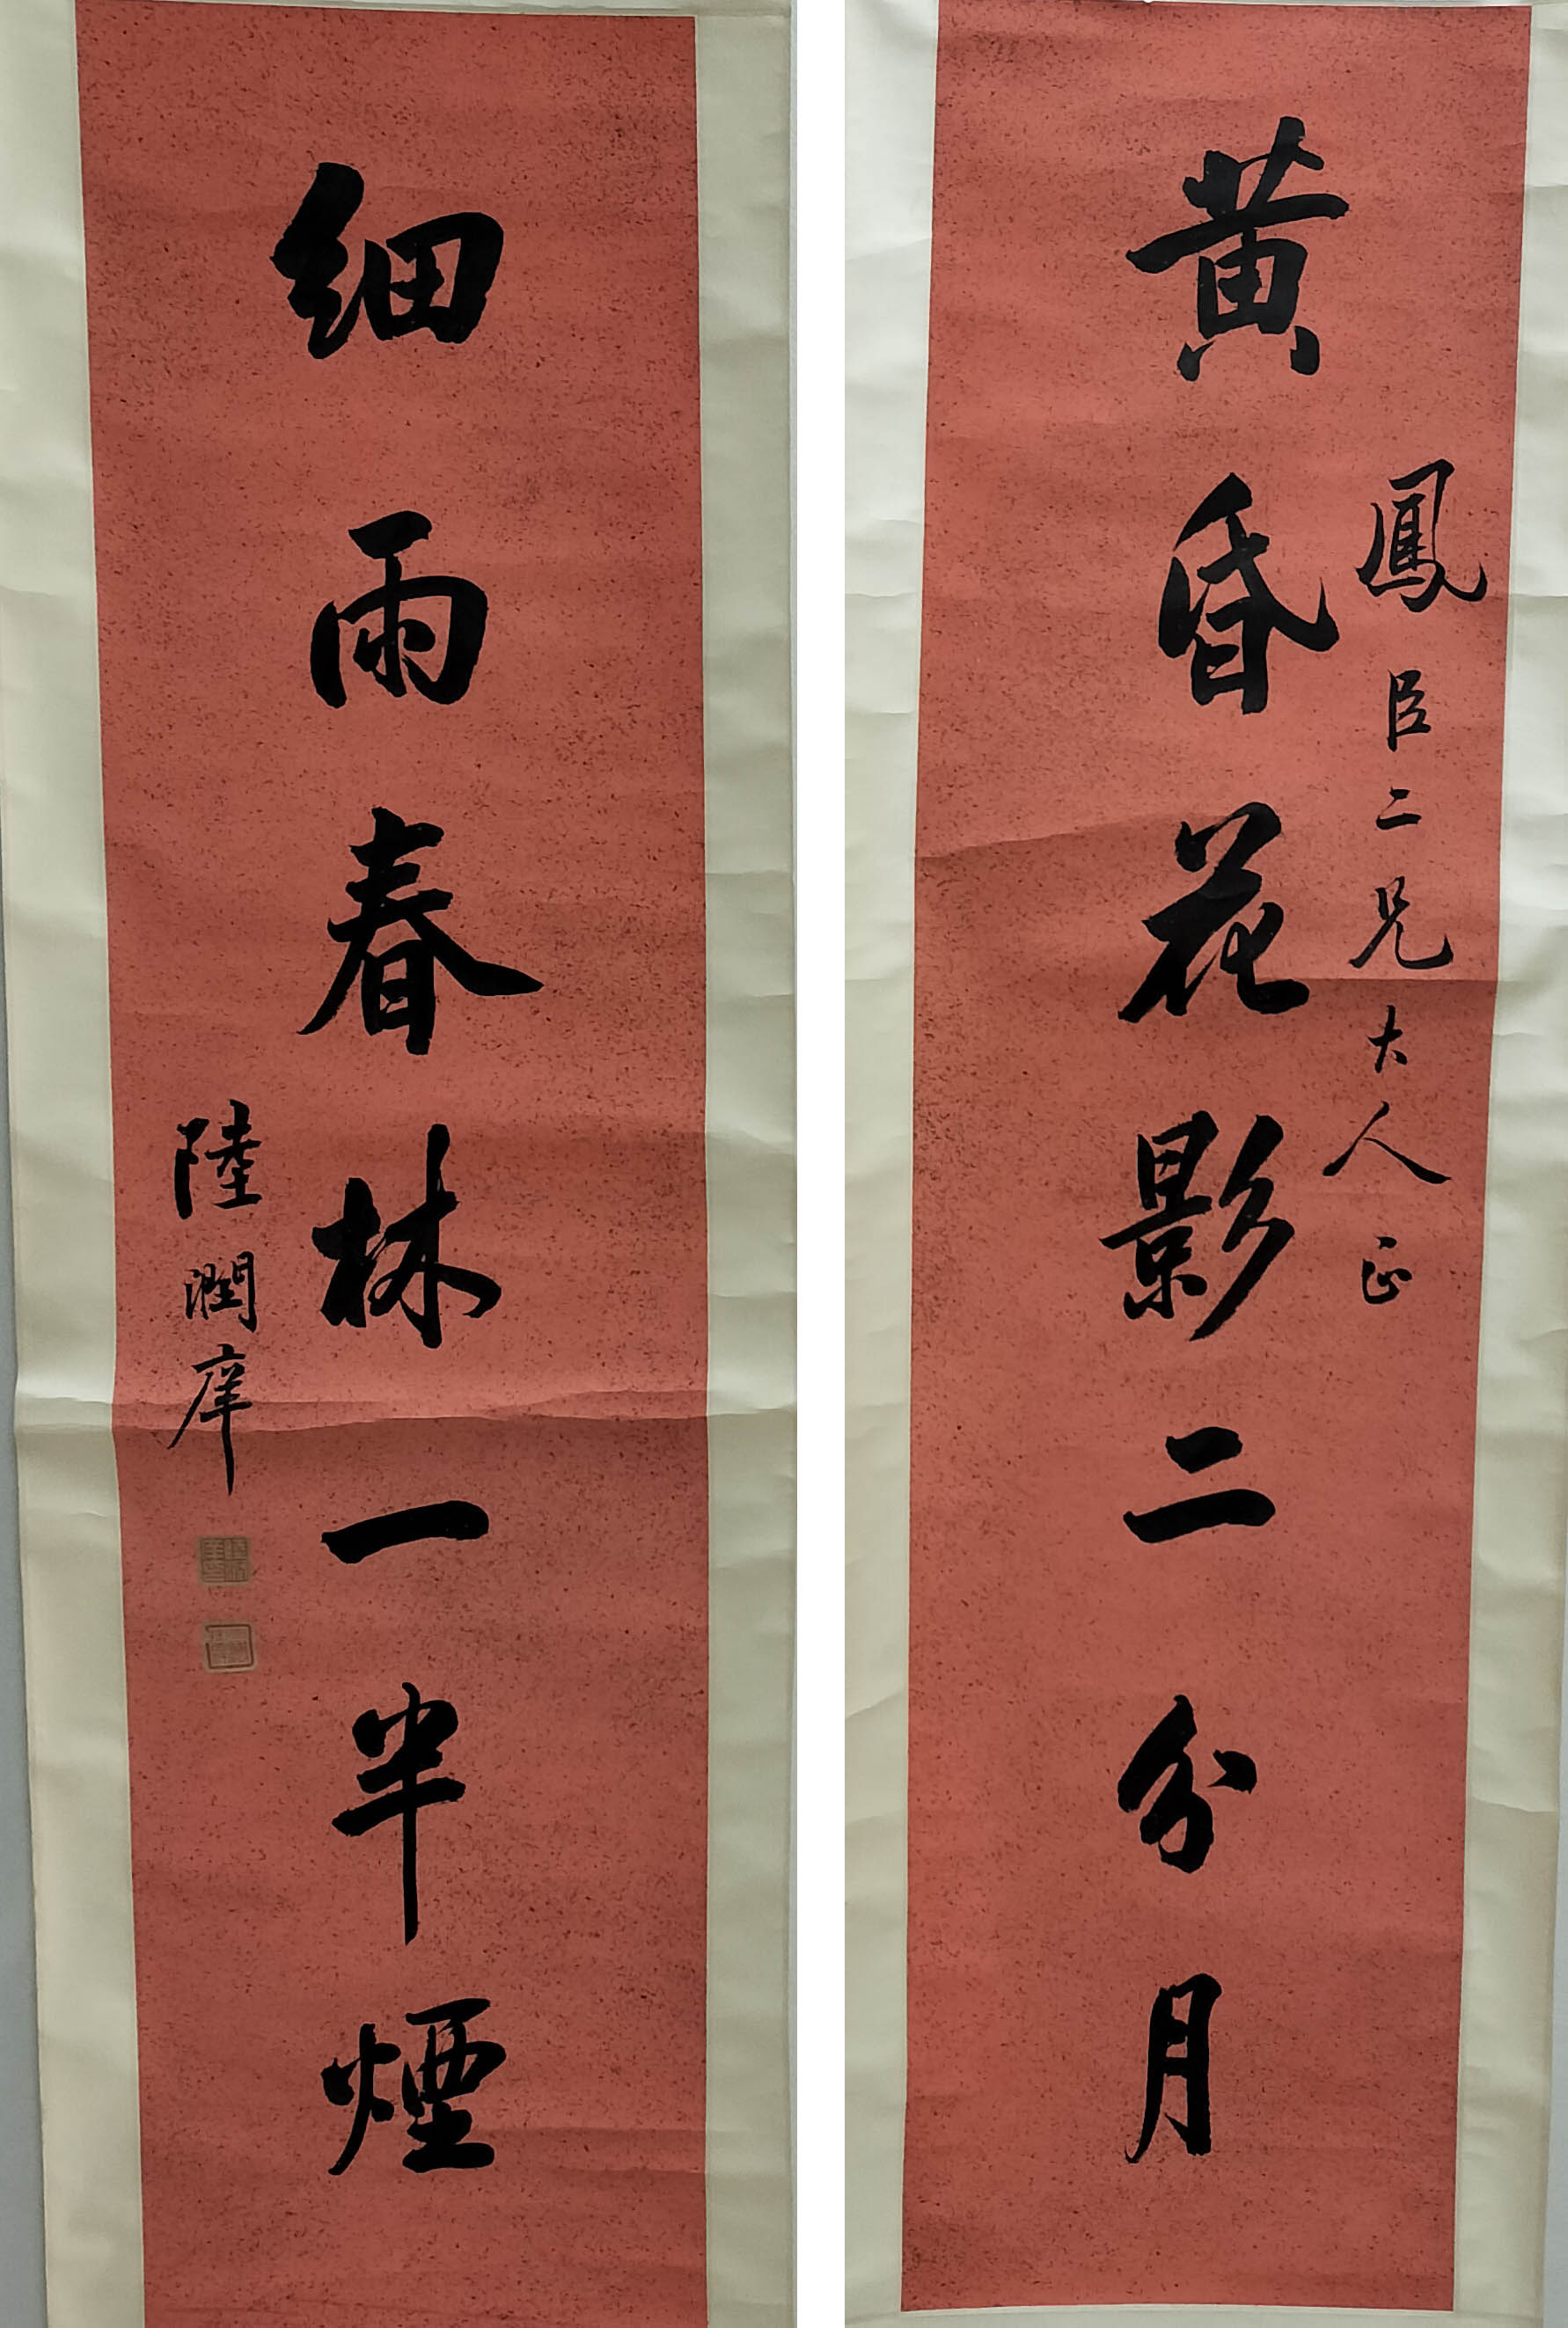 鳳臣二兄大人正
黃昏花影二分月
細雨春林一半煙
陸潤庠